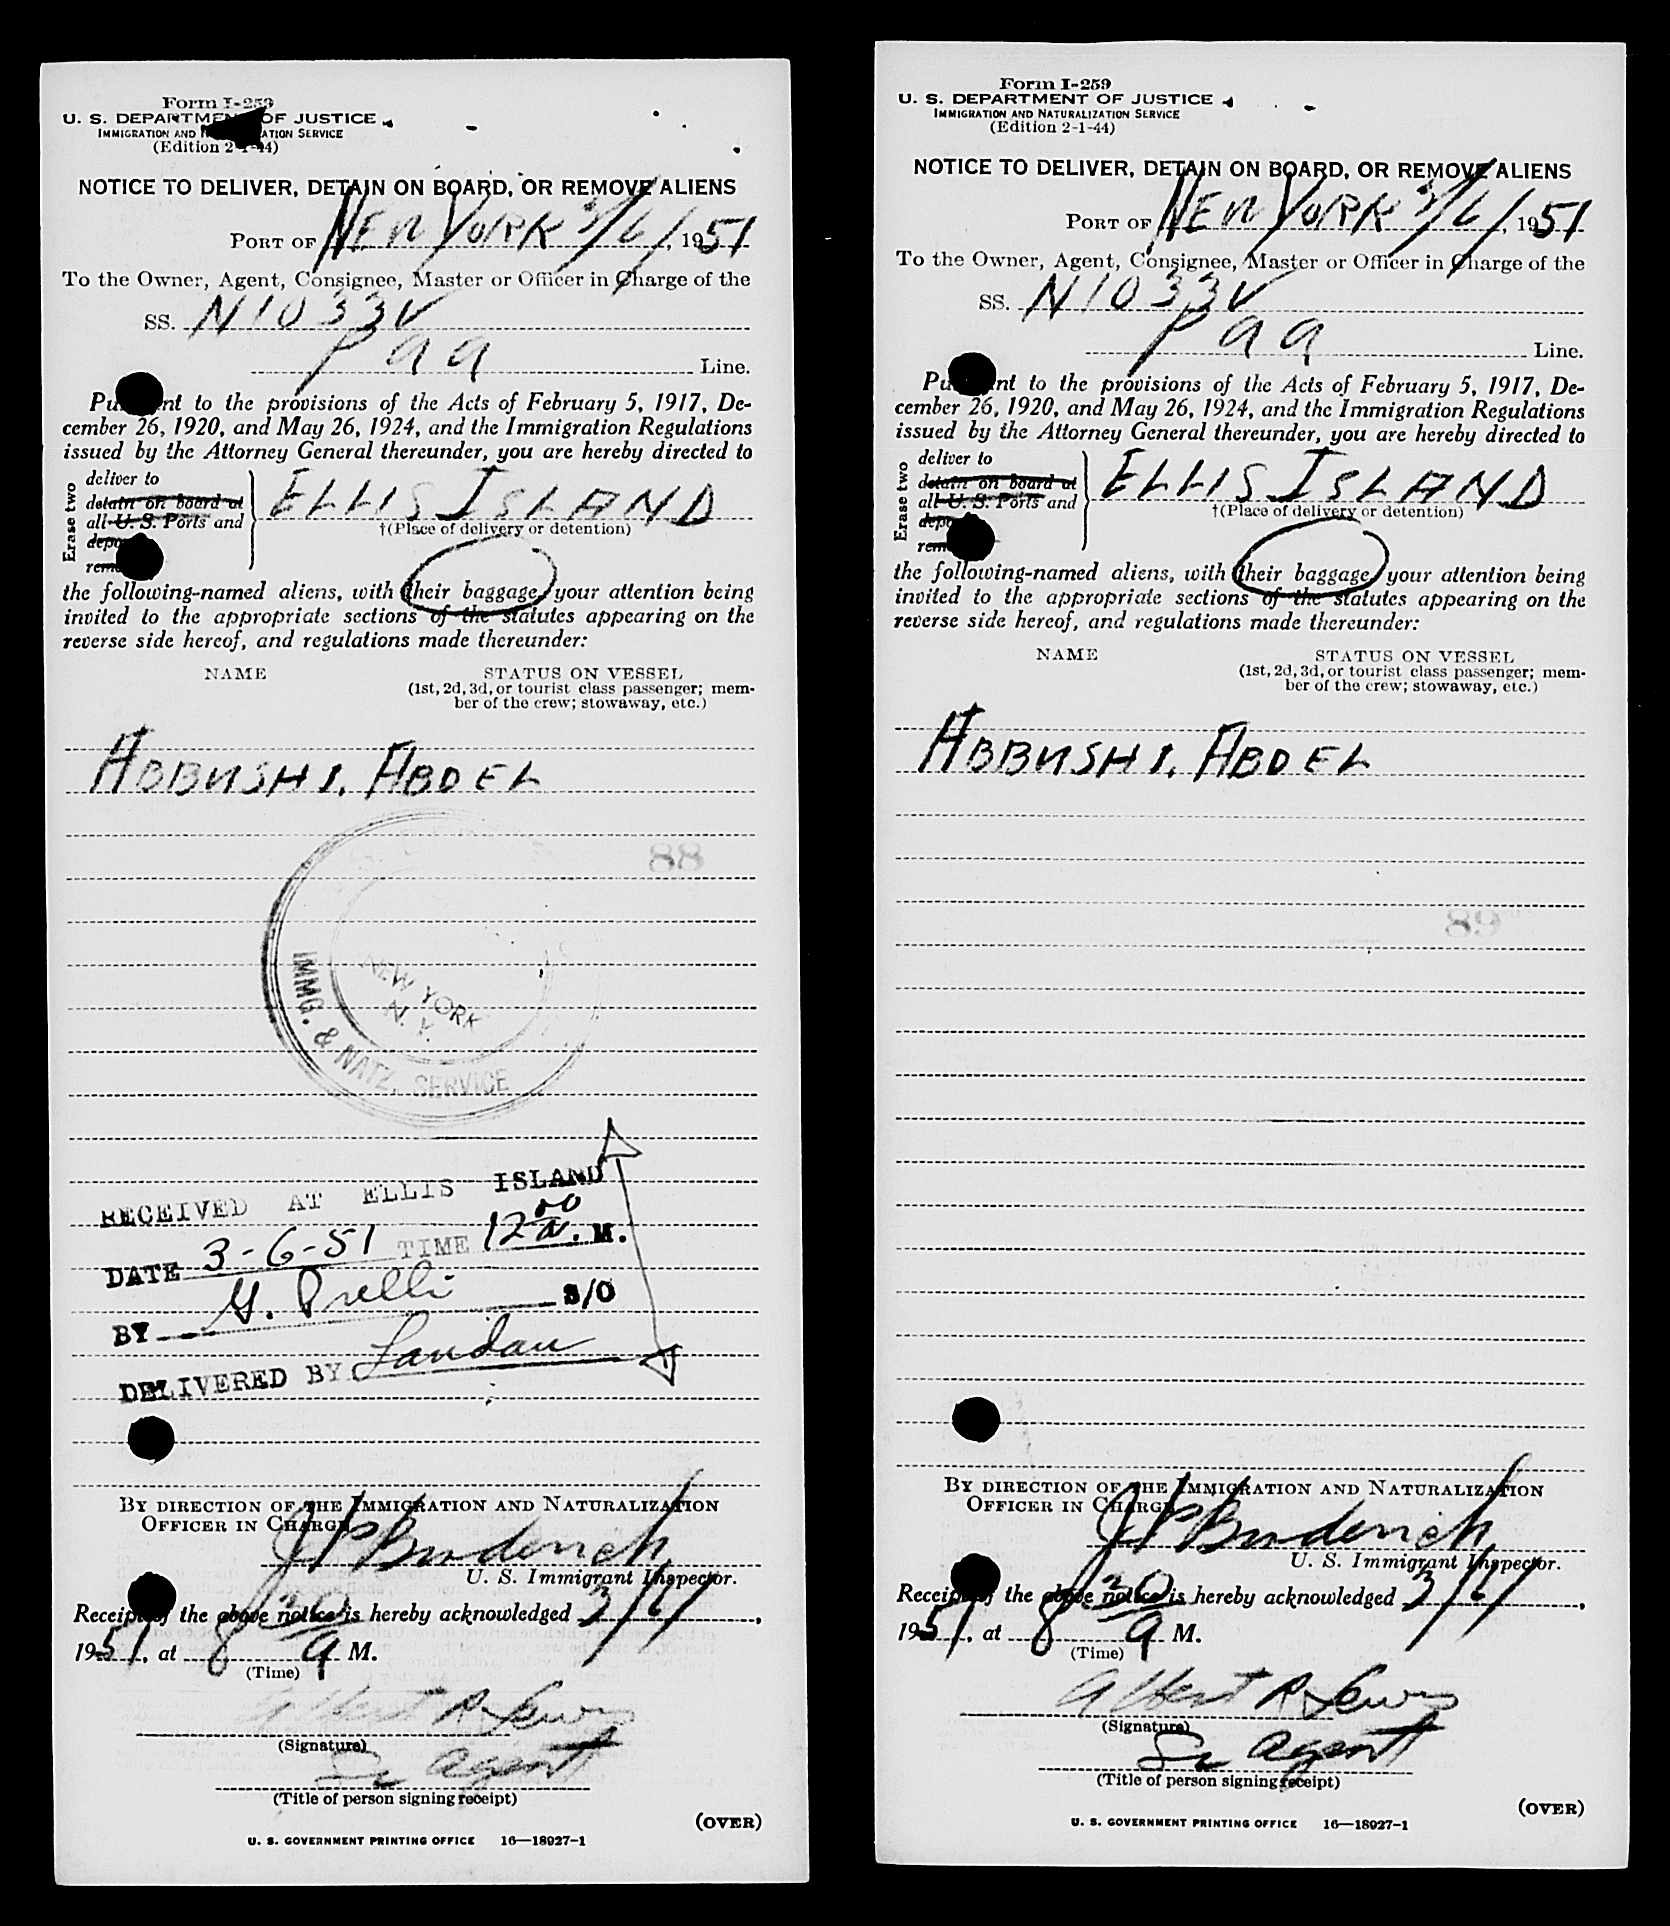 Form I-259
U. S. DEPARTMENT OF JUSTICE
IMMIGRATION AND NATURALIZATION SERVICE
(Edition 2-1-44)
NOTICE TO DELIVER, DETAIN ON BOARD, OR REMOVE ALIENS
PORT OF NEW YORK 3/6/, 1951
To the Owner, Agent, Consignee, Master or Officer in Charge of the
SS. N1033V
PAA Line.
Pursuant to the provisions of the Acts of February 5, 1917, De-
cember 26, 1920, and May 26, 1924, and the Immigration Regulations
issued by the Attorney General thereunder, you are hereby directed to
Erase two
deliver to
detain on board at
all U. S. Ports and
depo
remo
ELLIS ISLAND
†(Place of delivery or detention)
the following-named aliens, with their baggage, your attention being
invited to the appropriate sections of the statutes appearing on the
reverse side hereof, and regulations made thereunder:
NAME STATUS ON VESSEL
(1st, 2d, 3d, or tourist class passenger; mem-
ber of the crew; stowaway, etc.)
ABBUSHI, ABDEL
88
NEW YORK
N. Y.
IMMG. & NATZ. SERVICE
RECEIVED AT ELLIS ISLAND
DATE 3-6-51 TIME 12 00 A. M.
BY G. Prelli S/O
DELIVERED BY Landau
BY DIRECTION OF THE IMMIGRATION AND NATURALIZATION
OFFICER IN CHARGE
U. S. Immigrant Inspector.
Receipt of the above notice is hereby acknowledged 3/6/,
1951, at 8 30 A M.
(Time)
Albert R Lewis
(Signature)
Sr Agent
(Title of person signing receipt)
(OVER)
U. S. GOVERNMENT PRINTING OFFICE 16—18927-1
Form I-259
U. S. DEPARTMENT OF JUSTICE
IMMIGRATION AND NATURALIZATION SERVICE
(Edition 2-1-44)
NOTICE TO DELIVER, DETAIN ON BOARD, OR REMOVE ALIENS
PORT OF NEW YORK 3/6/, 1951
To the Owner, Agent, Consignee, Master or Officer in Charge of the
SS. N1033V
PAA Line.
Pursuant to the provisions of the Acts of February 5, 1917, De-
cember 26, 1920, and May 26, 1924, and the Immigration Regulations
issued by the Attorney General thereunder, you are hereby directed to
Erase two
deliver to
detain on board at
all U. S. Ports and
depo
rem
ELLIS ISLAND
†(Place of delivery or detention)
the following-named aliens, with their baggage, your attention being
invited to the appropriate sections of the statutes appearing on the
reverse side hereof, and regulations made thereunder:
NAME STATUS ON VESSEL
(1st, 2d, 3d, or tourist class passenger; mem-
ber of the crew; stowaway, etc.)
ABBUSHI, ABDEL
89
BY DIRECTION OF THE IMMIGRATION AND NATURALIZATION
OFFICER IN CHARGE
U. S. Immigrant Inspector.
Receipt of the above notice is hereby acknowledged 3/6/,
1951, at 8 30 A M.
(Time)
Albert R Lewis
(Signature)
Sr Agent
(Title of person signing receipt)
(OVER)
U. S. GOVERNMENT PRINTING OFFICE 16—18927-1